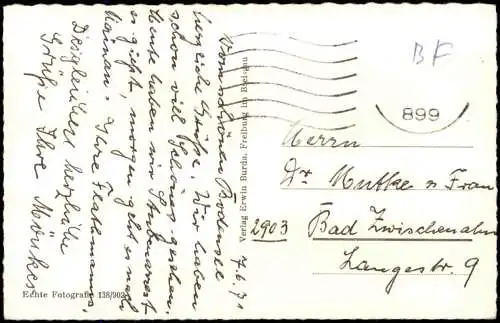 7.6.71
Vom schönen Bodensee
herzliche Grüße. Wir haben
schon viel Schönes gesehen.
Heute haben wir Stubenarrest
es gießt, morgen geht es nach
Mainau. Ihre Flathmanns.
Desgleichen herzliche
Grüße Ihre
Echte Fotografie 138/902
Verlag Erwin Burda, Freiburg im Breisgau
BF
899
Herrn
Dr Mutke u Frau
2903 Bad Zwischenahn
Langestr. 9